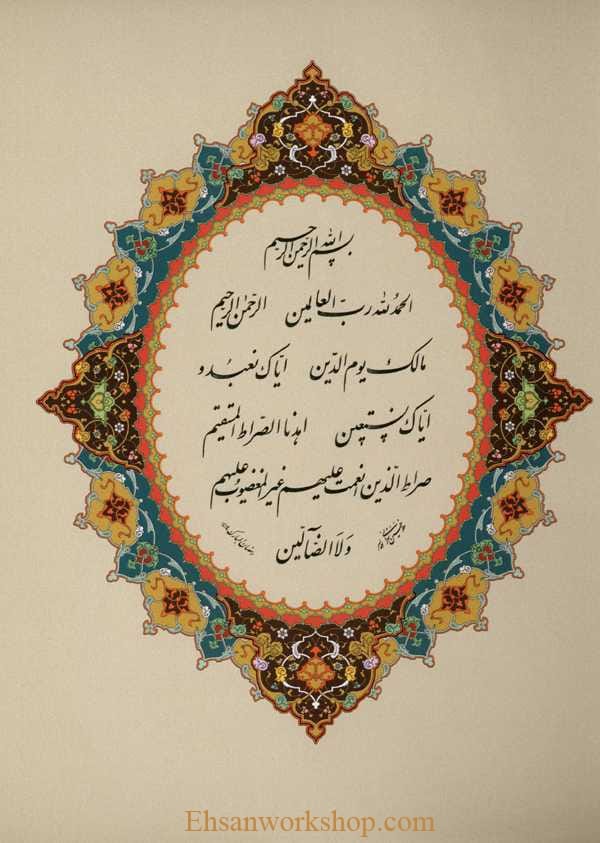 بسم الله الرحمن الرحیم
الحمد لله رب العالمین الرحمن الرحیم
مالک یوم الدین ایاک نعبد و
ایاک نستعین اهدنا الصراط المستقیم
صراط الذین انعمت علیهم غیر المغضوب علیهم
ولا الضالین
Ehsanworkshop.com